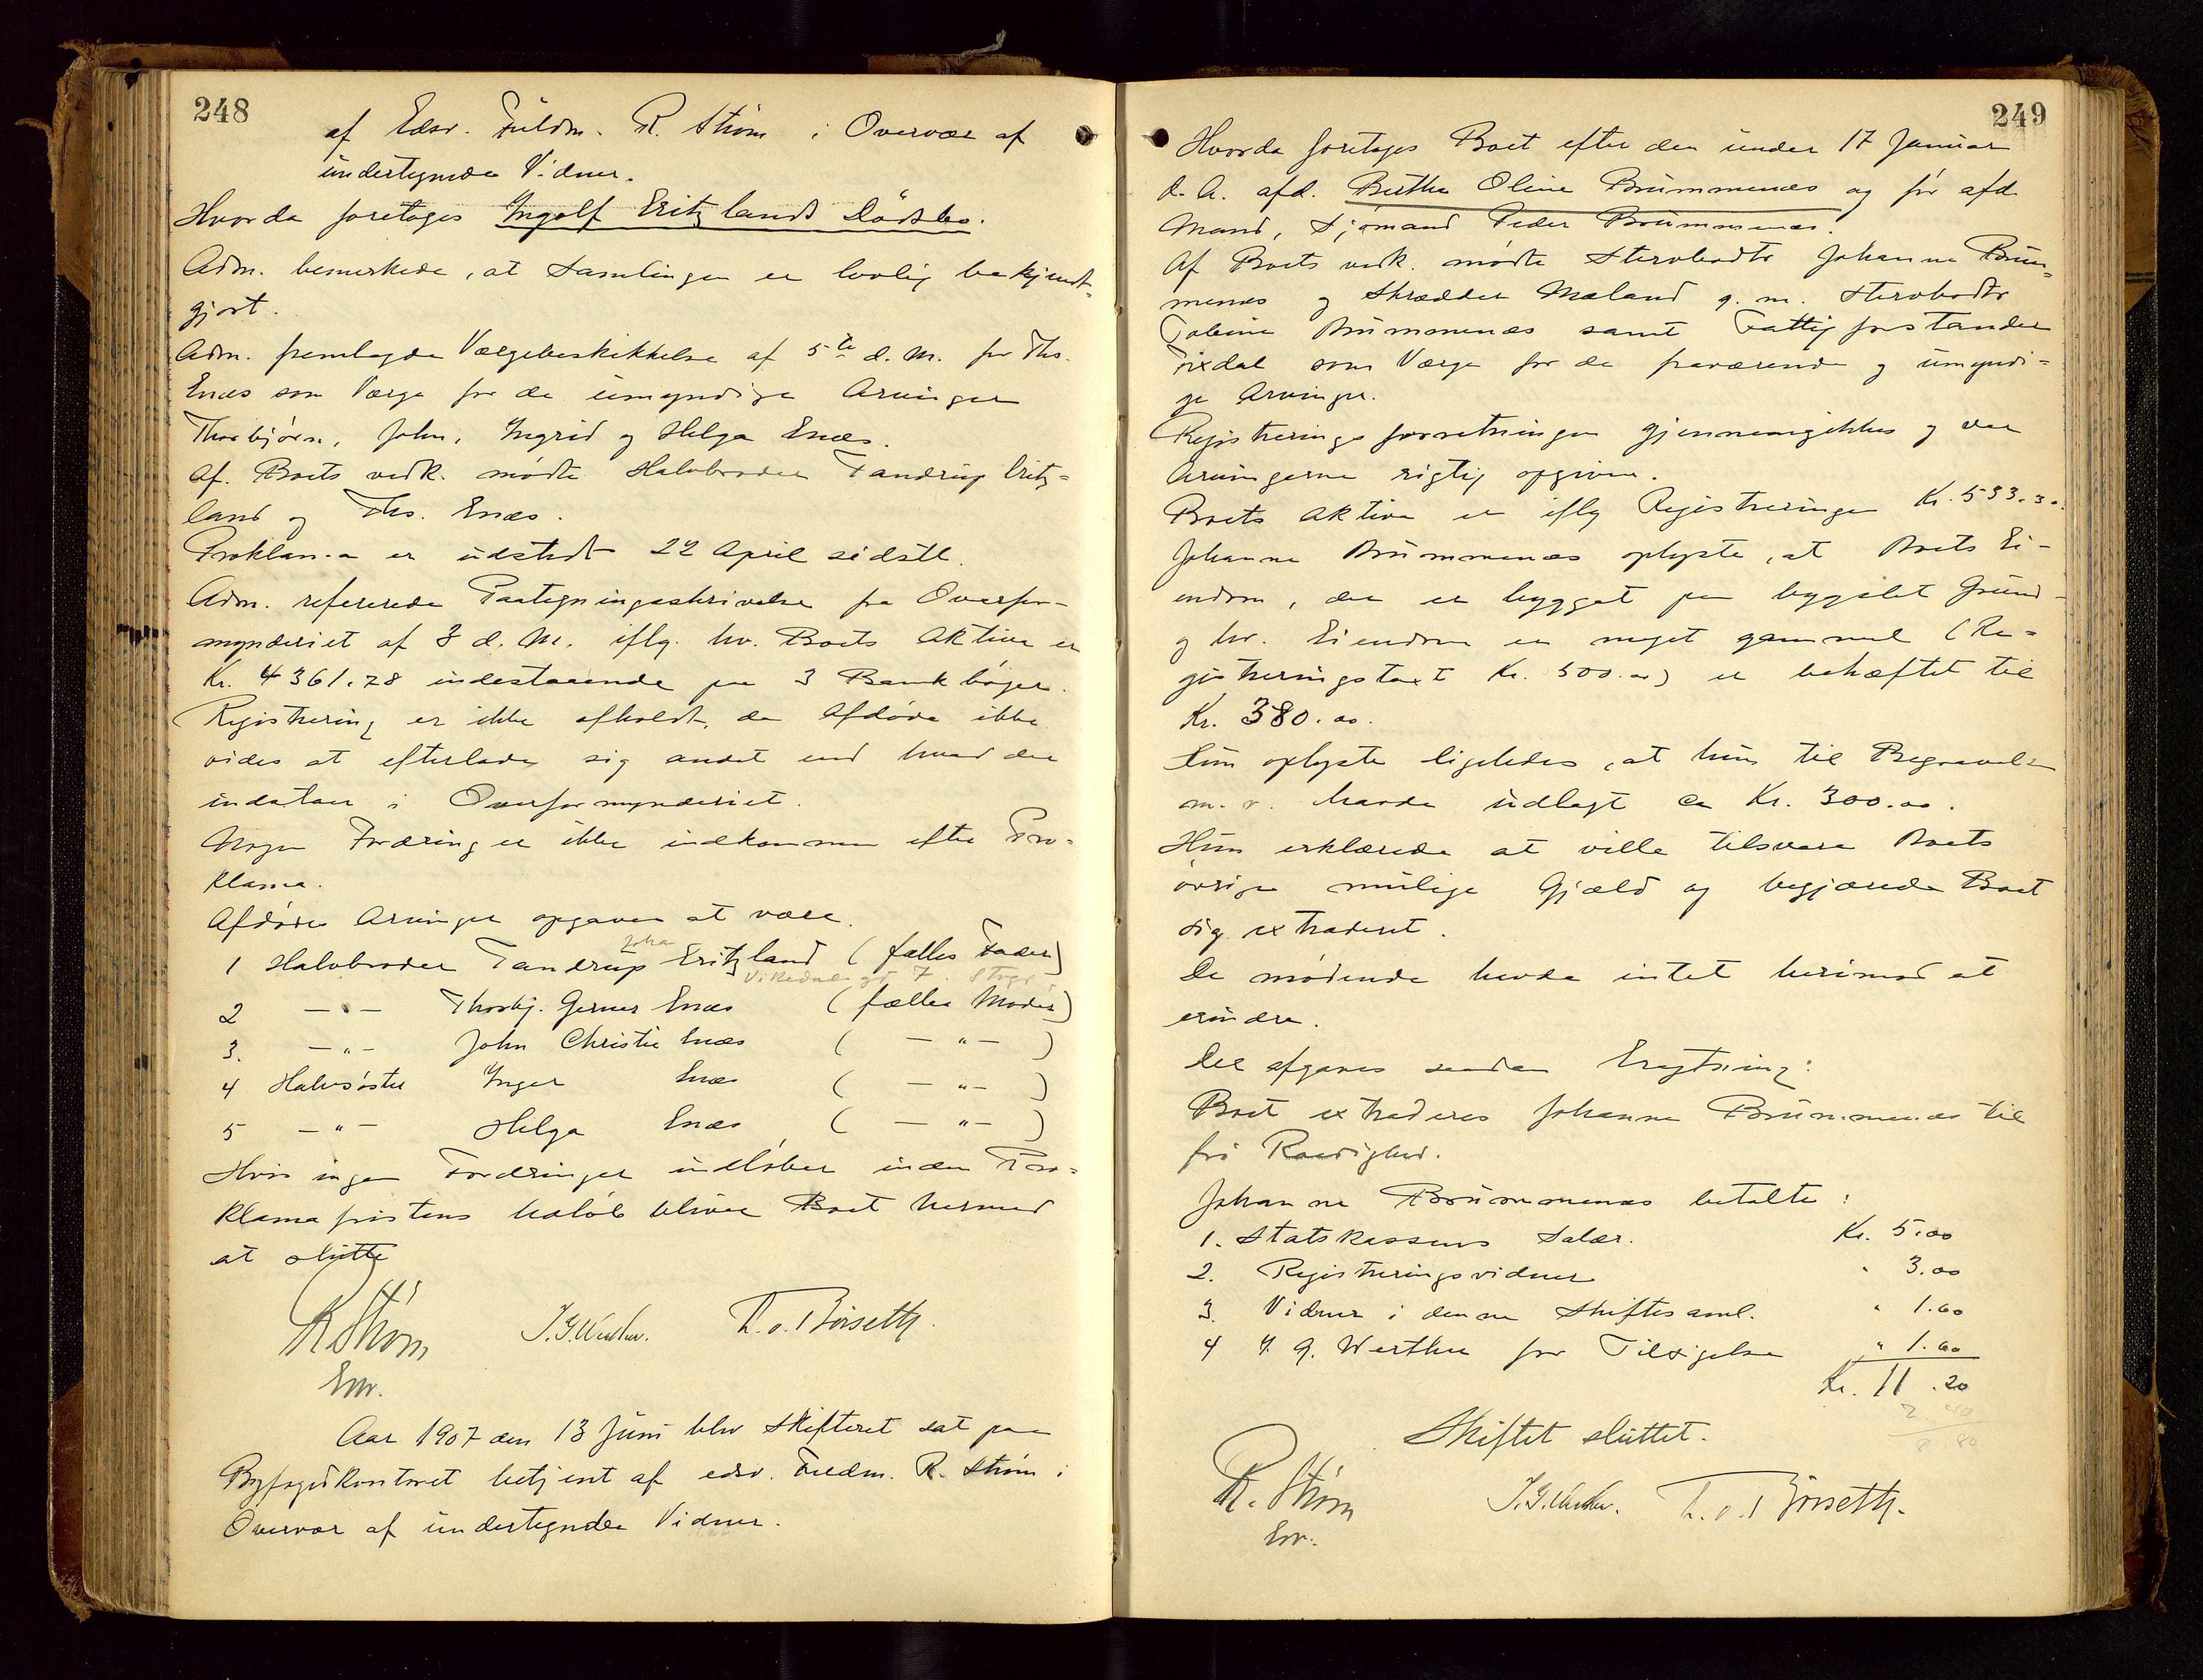 248
af Edsv. Fuldm. R. Strøm i Overvær af
undertegnede Vidner.
Hvorda foretoges Ingolf Eritzlands Dødsbo.
Adm. bemerkede, at Samlingen er lovlig bekjendt-
gjort.
Adm. fremlagde Værgebeskikkelse af 5te d. M. for Ths.
Enæs som Værge for de umyndige Arvinger
Thorbjørn, John, Ingrid og Helga Enæs.
Af Boets vedk. mødte Halvbroder Tandrup Eritz-
land og Ths. Enæs.
Proklama er udstedt 22 April sidstl.
Adm. refererede Paategningsskrivelse fra Overfor-
mynderiet af 3 d. M. iflg. hv. Boets Aktiva er
Kr. 4361.78 indestaaende paa 3 Bankbøger.
Registrering er ikke afholdt, da Afdøde ikke
vides at efterlade sig andet end hvad der
indestaar i Overformynderiet.
Nogen Fordring er ikke indkommen efter Pro-
klama.
Afdødes Arvinger opgaves at være
Joha
1 Halvbroder Tandrup Eritzland (fælles Fader)
Vikedal
2 — " — Thorbj. Gerner Enæs (fælles Moder)
3. — " — John Christie Enæs ( — " — )
4 Halvsøster Inger Enæs ( — " — )
5 — " — Helga Enæs ( — " — )
Hvis ingen Fordringer indløber inden Pro-
klamafristens Udløb bliver Boet hermed
at slutte
R Strøm J. G. Werther. T. O. Børseth.
Em.
Aar 1907 den 13 Juni blev Skifteret sat paa
Byfogdkontoret betjent af edsv. Fuldm. R. Strøm i
Overvær af undertegnede Vidner.
249
Hvorda foretoges Boet efter den under 17 Januar
d. A. afd. Berthe Oline Brummenæs og før afd
Mand, Sjømand Peder Brummenæs.
Af Boets vedk. mødte Stervbodtr Johanne Brum-
menæs og Skrædder Mæland g. m. Stervbodtr
Tobine Brummenæs samt Fattigforstander
Tixdal som Værge for de fraværende og umyndi-
ge Arvinger.
Registreringsforretningen gjennemgikkes og var
Arvingerne rigtig opgivne.
Boets Aktiva er iflg Registreringen Kr. 533.30.
Johanne Brummenæs oplyste, at Boets Ei-
endom, der er bygget paa bygslet Grund
og hv. Eiendom er meget gammel (Re-
gistreringstaxt Kr. 500.00) er behæftet til
Kr. 380.00.
Hun oplyste ligeledes, at hun til Begravelse
m. v. havde udlagt ca Kr. 300.00.
Hun erklærede at ville tilsvare Boets
øvrige mulige Gjæld og begjærede Boet
sig extraderet.
De mødende havde intet herimod at
erindre.
Der afgaves saadan Eragtning:
Boet extraderes Johanne Brummenæs til
fri Raadighed.
Johanne Brummenæs betalte:
1. Statskassens Salær. Kr. 5.00
2. Registreringsvidner " 3.00
3. Vidner i denne Skiftesaml. " 1.60
4 J. G. Werther for Tilsigelse " 1.60
Kr. 11.20
2.40
8.80
Skiftet sluttet.
R. Strøm J. G. Werther. T. O. Børseth.
Em.